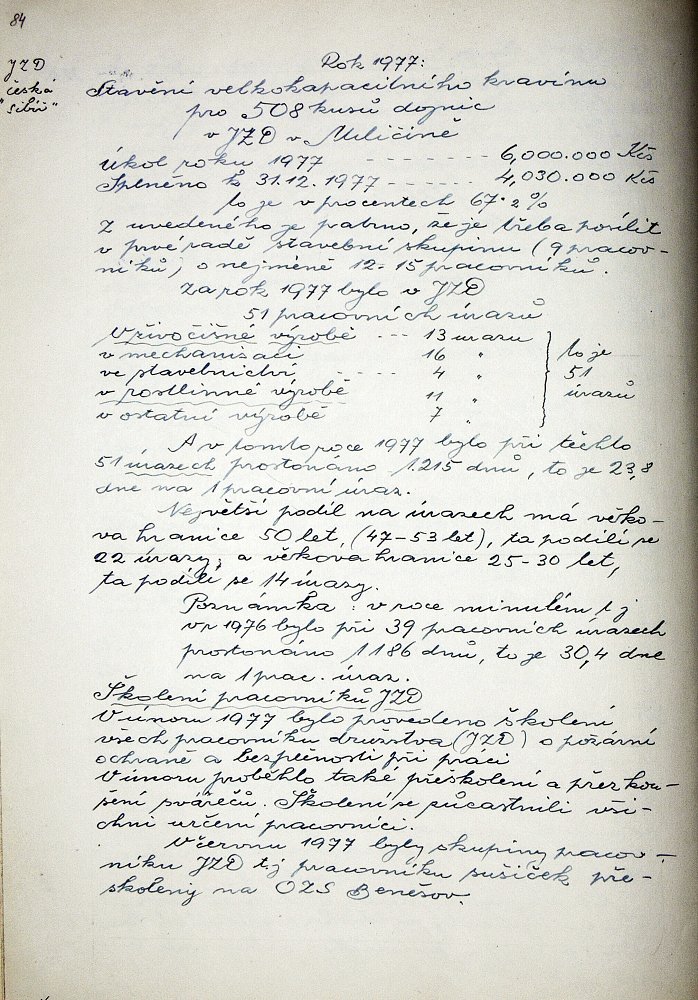 84
JZD
česká
"Sibiř"
Rok 1977:
Stavění velkokapacitního kravínu
pro 508 kusů dojnic
v JZD v Miličíně
Úkol roku 1977 - - - - - - 6,000.000 Kčs
Splněno k 31.12.1977 - - - - - 4,030.000 Kčs
to je v procentech 67·2%
Z uvedeného je patrno, že je třeba posílit
v prvé řadě stavební skupinu (9 pracov-
níků) o nejméně 12-15 pracovníků.
Za rok 1977 bylo v JZD
51 pracovních úrazů
V živočišné výrobě - - - 13 úrazu
v mechanisaci 16 "
ve stavebnictví - - - - 4 "
v rostlinné výrobě 11 "
v ostatní výrobě 7 "
to je
51
úrazů
A v tomto roce 1977 bylo při těchto
51 úrazech prostonáno 1.215 dnů, to je 23,8
dne na 1 pracovní úraz.
Největší podíl na úrazech má věko-
va hranice 50 let, (47-53 let), ta podílí se
22 úrazy, a věkova hranice 25-30 let,
ta podílí se 14 úrazy.
Poznámka: v roce minulém t j
v r 1976 bylo při 39 pracovních úrazech
prostonáno 1186 dnů, to je 30,4 dne
na 1 prac. úraz.
Školení pracovníků JZD
V únoru 1977 bylo provedeno školení
všech pracovníku družstva (JZD) o požární
ochraně a bezpečnosti při práci
V únoru proběhlo také přeškolení a přezkou-
šení svářečů. Školení se zúčastnili vši-
chni určení pracovníci.
V červnu 1977 byly skupiny pracov-
níku JZD tj pracovníku sušiček pře-
školeny na OZS Benešov.